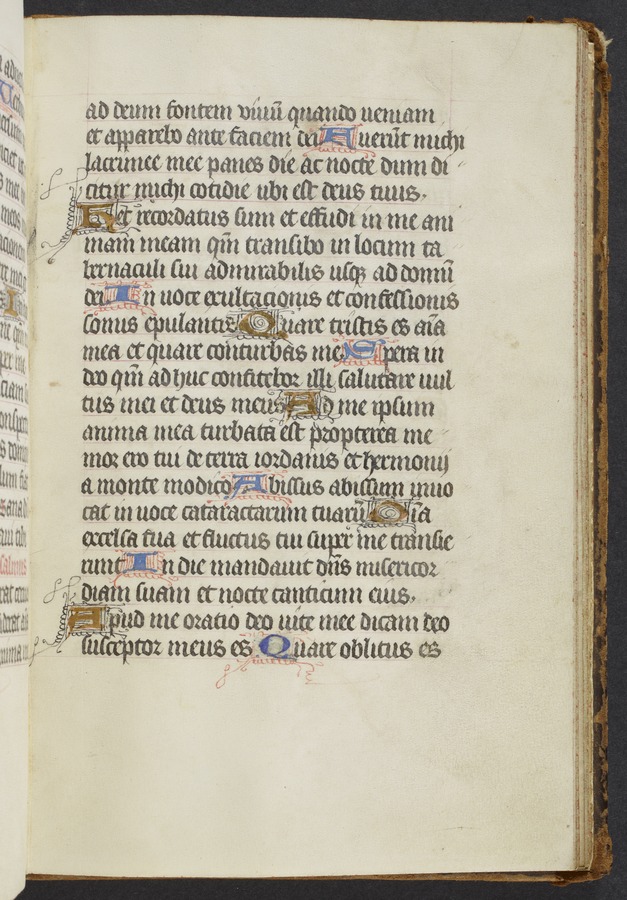 ad deum fontem viuū quando ueniam
et apparebo ante faciem dei Auerūt michi
lacrimee mee panes die ac nocte dum di
citur michi cotidie ubi est deus tuus.
Hec recordatus sum et effudi in me ani
mam meam qm̄ transibo in locum ta
bernaculi sui admirabilis usqꝫ ad domū
dei In uoce exultacionis et confessionis
sonus epulantis Quare tristis es aīa
mea et quare conturbas me Spera in
deo qm̄ adhuc confitebor illi salutare uul
tus mei et deus meus Ad me ipsum
anima mea turbata est propterea me
mor ero tui de terra iordanis et hermonij
a monte modico Abissus abissum inuo
cat in uoce cataractarum tuarū Oīa
excelsa tua et fluctus tui super me transie
runt In die mandauit dn̄s misericor
diam suam et nocte canticum eius.
Apud me oratio deo uite mee dicam deo
susceptor meus es Quare oblitus es